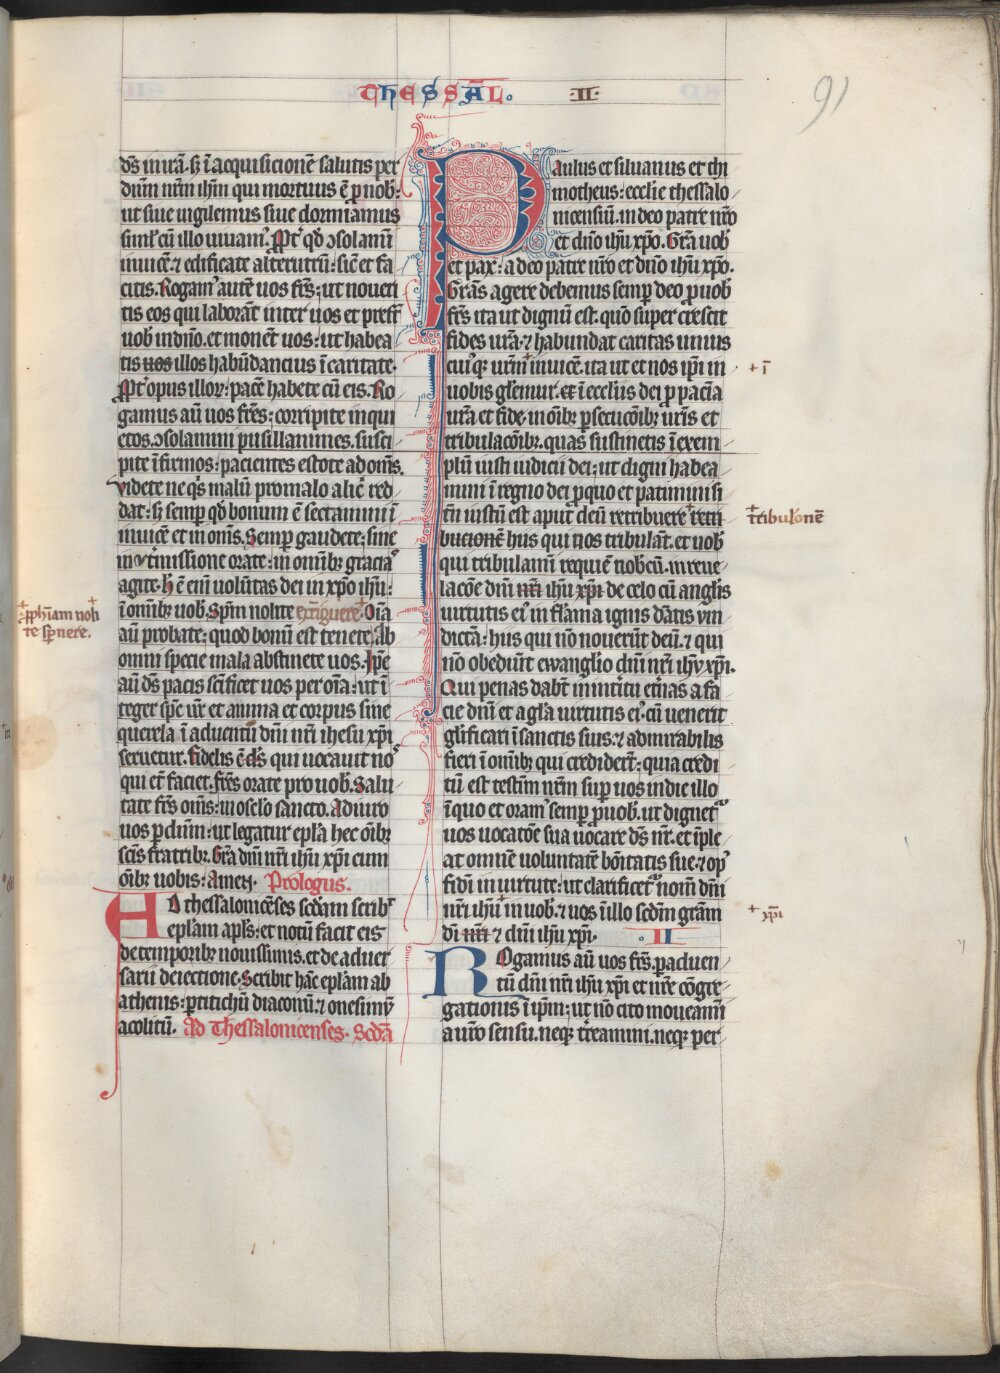 THESSAL. II
91
ds̄ in irā. sꝫ ī acquisicionē salutis per
dn̄m nr̄m ihm̄ qui mortuus ē p nob:
ut siue uigilemus siue dormiamus
siml̄ cū illo uiuam⁹. Ppt̓ qd̓ ɔsolamī
inuicē. ⁊ edificate alterutrū: sic̄ et fa
citis. Rogam⁹ autē uos fr̄s: ut noueri
tis eos qui laborāt inter uos et presūt
uob̓ in dn̄o. et monēt uos: ut habea
tis uos illos habūdancius ī caritate.
Ppt̓ opus illoꝝ: pacē habete cū eis. Ro
gamus aū uos fr̄es: corripite inqui
etos. ɔsolamini pusillanimes. susci
pite īfirmos: pacientes estote ad om̄s.
videte ne q̓s malū pro malo alic̄ red
dat: sꝫ semp qd̓ bonum ē sectamini ī
inuicē et in om̄s. Semp gaudete: sine
int̓missione orate: in om̄ibꝫ gracias
agite. h̓ ē enī volūtas dei in xp̄o ihū:
ī om̄ibꝫ uob̓. Spm̄ nolite extiguere. Oīa
aū probate: quod bonū est tenete. Ab
omni specie mala abstinete uos. Ip̄e
aū ds̄ pacis sc̄ificet uos per oīa: ut ī
teger sp̄c ur̄ et anima et corpus sine
querela ī aduentū dn̄i nr̄i ihesu xp̄i
seruetur. Fidelis ē ds̄ qui uocauit uos
qui et̄ faciet. Fr̄es orate pro uob̓. Salu
tate fr̄s om̄s: in osclo sancto. Adiuro
uos p dn̄m: ut legatur epl̄a hec om̄ibꝫ
sc̄is fratribꝫ. Gr̄a dn̄i nr̄i ihū xp̄i cum
om̄ibꝫ uobis: Amen. Prologus.
AD thessalonicēses scd̄am scribit
epl̄am apl̄s: et notū facit eis
de temporibꝫ nouissimis. et de aduer
sarii deiectione. Scribit hāc epl̄am ab
athenis: p titichū diaconū. ⁊ onesimū
acolitū. Ad Thessalonicenses. Scd̄a
+pph̄iam noli+
te sp̄nere.
Paulus et siluanus et thi
motheus: ecclīe thessalo
nicensiū. in deo patre nr̄o
et dn̄o ihū xp̄o. Gr̄a uob̓
et pax: a deo patre nr̄o et dn̄o ihū xp̄o.
Gr̄as agere debemus semp deo p uob̓
fr̄s ita ut dignū est. quō super crescit
fides ur̄a. ⁊ habundat caritas unius
cui⁹qꝫ ur̄m inuicē. ita ut et nos ip̄i in
uobis gl̄emur. et ī ecclīis dei p pacīa
ur̄a et fide. in oībꝫ psecucōibꝫ ur̄is et
tribulacōibꝫ. quas sustinetis ī exem
plū iusti iudicii dei: ut digni habea
mini ī regno dei p quo et patimini si
tn̄ iustū est aput deū retribuere retri
bucionē hiis qui uos tribulāt. et uob̓
qui tribulamī requiē nob̓cū. in reue
lacōe dn̄i nr̄i ihū xp̄i de celo cū angl̄is
uirtutis ei⁹ in flāma ignis dātis vin
dictā: hiis qui nō nouerūt deū. ⁊ qui
nō obediūt ewanglio dn̄i nr̄i ihū xp̄i.
Qui penas dabūt in int̓itu et̓nas a fa
cie dn̄i et a gl̄a uirtutis ei⁹. cū uenerit
glificari ī sanctis suis. ⁊ admirabilis
fieri ī om̄ibꝫ qui crediderūt: quia credi
tū est testim̄ nr̄m sup uos in die illo
ī quo et oram⁹ semp p uob̓. ut dignet̓
uos uocatōe sua uocare ds̄ nr̄. et īple
at omnē voluntatē bōitatis sue. ⁊ op⁹
fidei in uirtute: ut clarificet̓ nom̄ dn̄i
nr̄i ihū in uob̓. ⁊ uos ī illo scdm̄ gr̄am
dī nr̄i ⁊ dn̄i ihū xp̄i. II
ROgamus aū uos fr̄s. p aduen
tū dn̄i nr̄i ihū xp̄i et nr̄e cōgre
gationis ī ip̄m: ut nō cito moueamī
a uro sensu. neqꝫ t̓reamini. neqꝫ per
+ ī
+tribulōnē
+ xp̄i